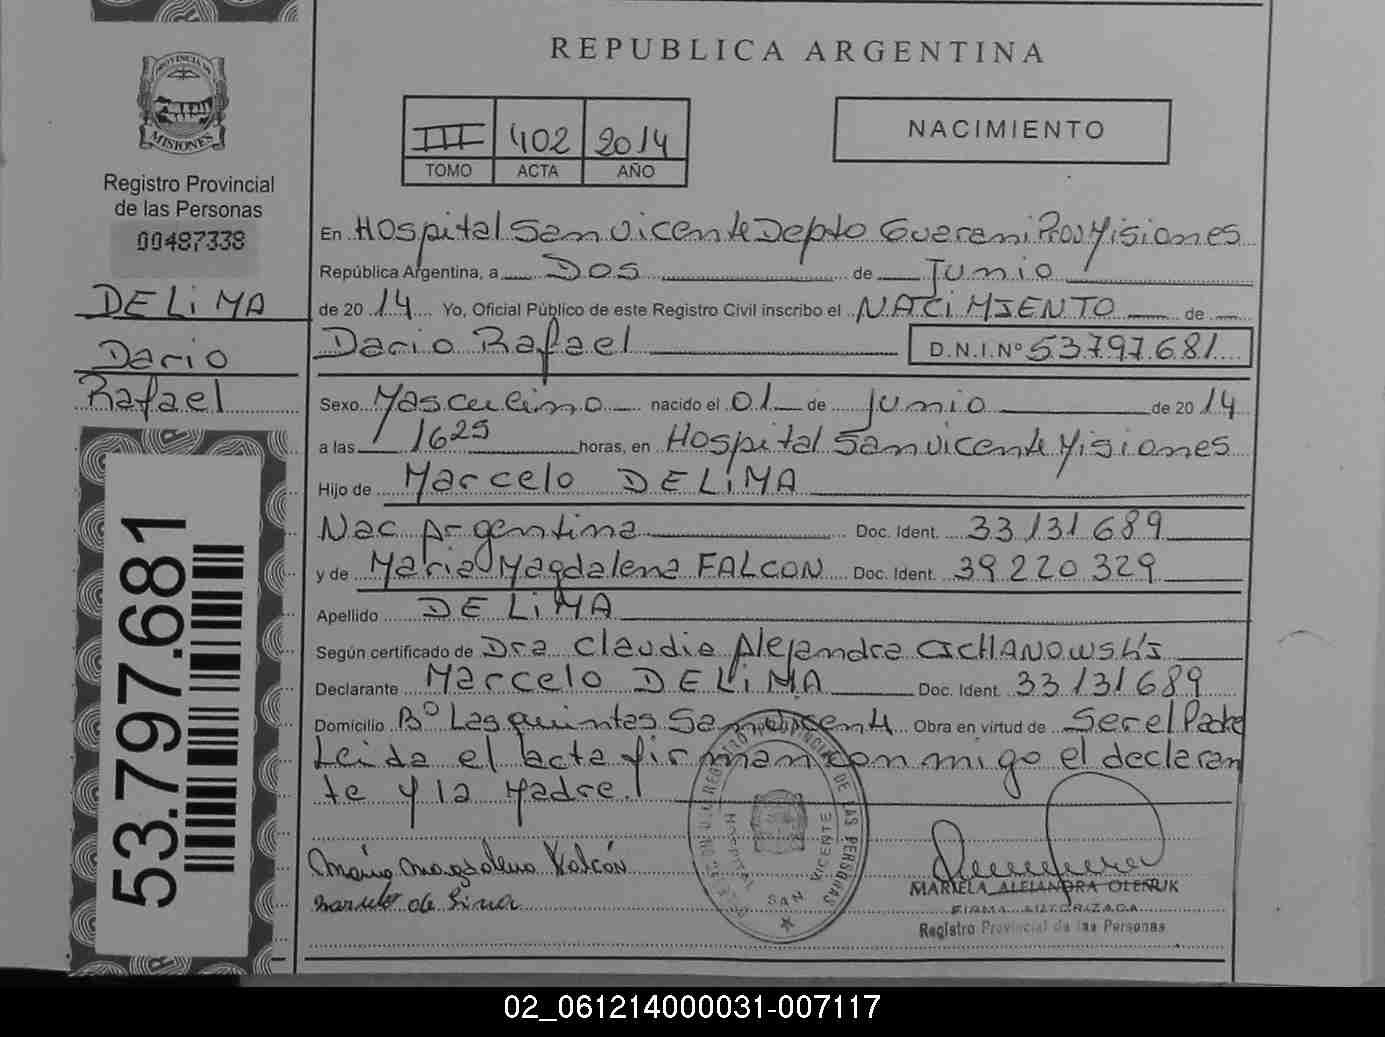 REPUBLICA ARGENTINA
PROVINCIA DE
MISIONES
Registro Provincial
de las Personas
00487338
DE LiMA
Dario
Rafael
53.797.681
III 402 2014
TOMO ACTA AÑO
NACIMIENTO
En Hospital San vicente Depto Guarani Prov Misiones
República Argentina, a Dos de Junio
de 2014 Yo, Oficial Público de este Registro Civil inscribo el NACiMIENTO de
Dario Rafael D.N.I.Nº 53.797.681
Sexo Masculino nacido el 01 de Junio de 2014
a las 1625 horas, en Hospital San vicente Misiones
Hijo de Marcelo DE LiMA
Nac Argentina Doc. Ident. 33 131 689
y de Maria Magdalena FALCON Doc. Ident. 39 220 329
Apellido DE LiMA
Según certificado de Dra Claudia Alejandra CICHANOWSKI
Declarante Marcelo DE LiMA Doc. Ident. 33 131 689
Domicilio Bº Las quintas San vicente Obra en virtud de Ser el Padre
Leida el acta firman con migo el declaran
te y la Madre.
REGISTRO PROVINCIAL DE LAS PERSONAS
HOSPITAL SAN VICENTE
María Magdalena Falcón
de Lima
MARIELA ALEJANDRA OLENIUK
FIRMA AUTORIZADA
Registro Provincial de las Personas
02_061214000031-007117